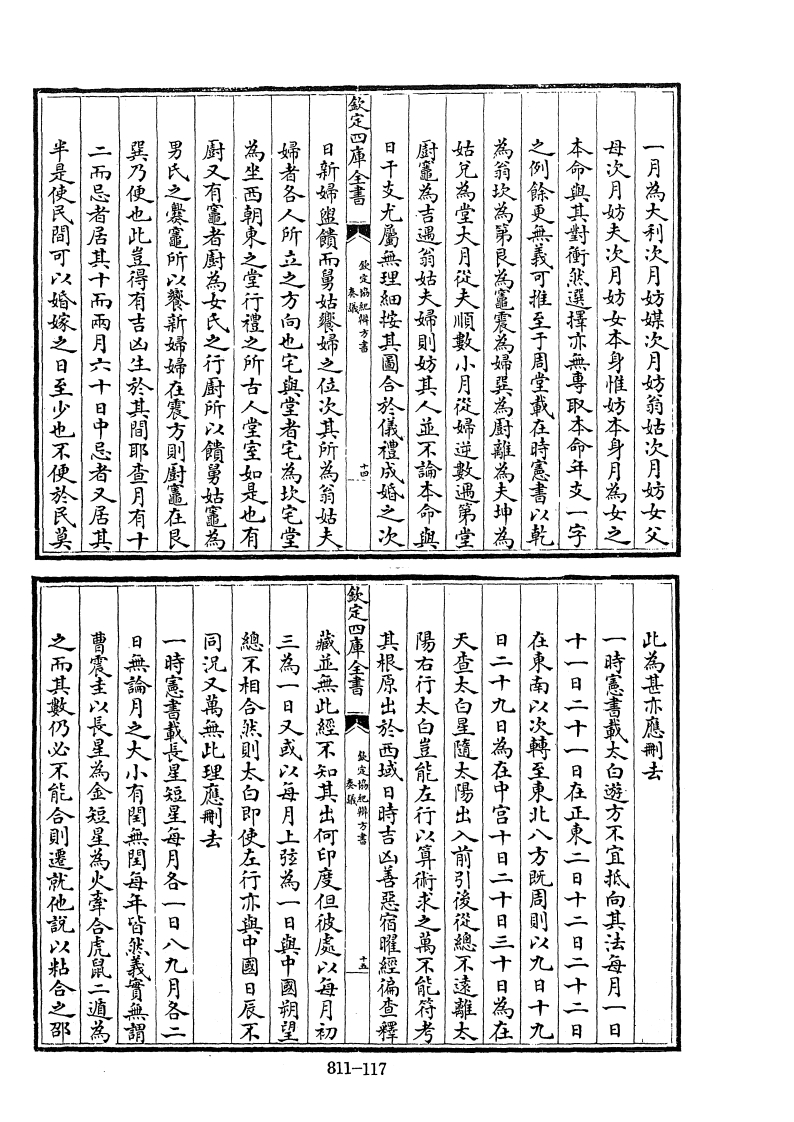 一月為大利次月妨媒次月妨翁姑次月妨女父
母次月妨夫次月妨女本身惟妨本身月為女之
本命與其對衝然選擇亦無專取本命年支一字
之例餘更無義可推至于周堂載在時憲書以乾
為翁坎為第艮為竈震為婦巽為厨離為夫坤為
姑兌為堂大月從夫順數小月從婦逆數遇第堂
厨竈為吉遇翁姑夫婦則妨其人並不論本命與
日干支尤屬無理細按其圖合於儀禮成婚之次
欽定四庫全書
欽定協紀辨方書
奏議
十四
日新婦盥饋而舅姑饗婦之位次其所為翁姑夫
婦者各人所立之方向也宅與堂者宅為坎宅堂
為坐西朝東之堂行禮之所古人堂室如是也有
厨又有竈者厨為女氏之行厨所以饋舅姑竈為
男氏之爨竈所以饗新婦婦在震方則厨竈在艮
巽乃便也此豈得有吉凶生於其間耶查月有十
二而忌者居其十而兩月六十日中忌者又居其
半是使民間可以婚嫁之日至少也不便於民莫
此為甚亦應刪去
一時憲書載太白遊方不宜抵向其法每月一日
十一日二十一日在正東二日十二日二十二日
在東南以次轉至東北八方既周則以九日十九
日二十九日為在中宫十日二十日三十日為在
天查太白星隨太陽出入前引後從總不遠離太
陽右行太白豈能左行以算術求之萬不能符考
其根原出於西域日時吉凶善惡宿曜經徧查釋
欽定四庫全書
欽定協紀辨方書
奏議
十五
藏並無此經不知其出何印度但彼處以每月初
三為一日又或以每月上弦為一日與中國朔望
總不相合然則太白即使左行亦與中國日辰不
同况又萬無此理應刪去
一時憲書載長星短星每月各一日八九月各二
日無論月之大小有閏無閏每年皆然義實無謂
曹震圭以長星為金短星為火牽合虎鼠二遁為
之而其數仍必不能合則遷就他說以粘合之邵
811-117